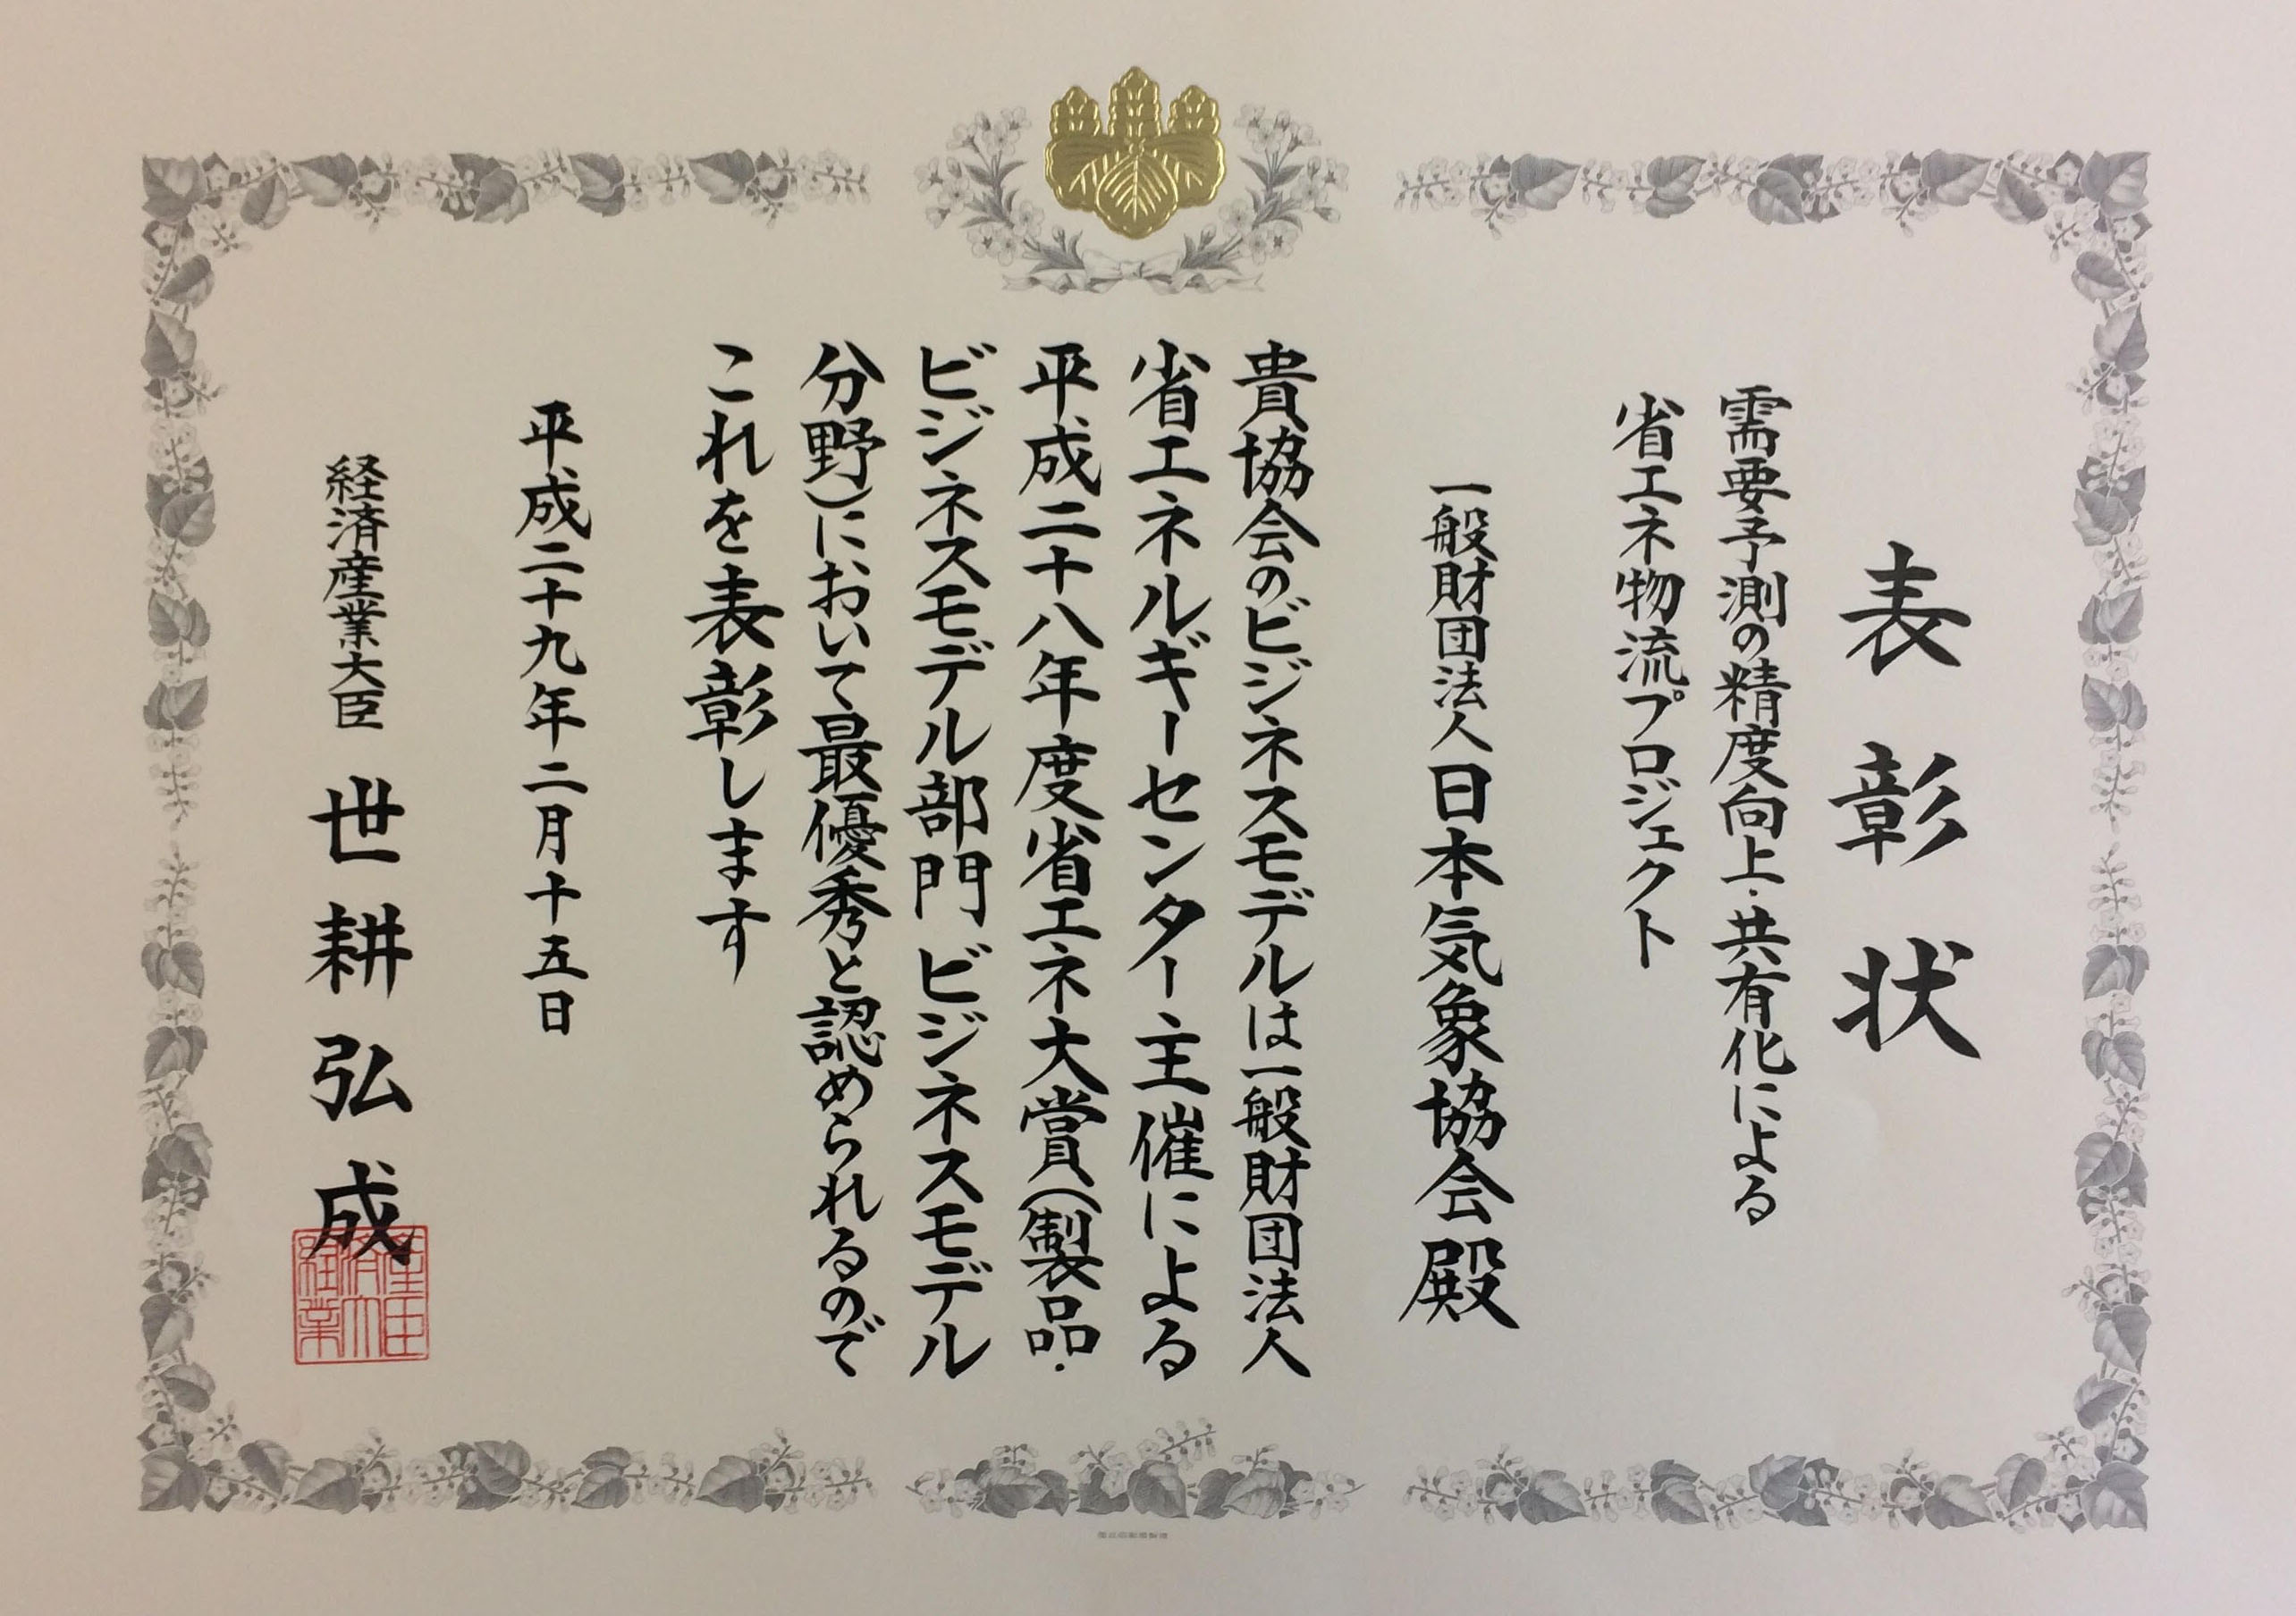 表彰状
需要予測の精度向上・共有化による
省エネ物流プロジェクト
一般財団法人日本気象協会殿
貴協会のビジネスモデルは一般財団法人
省エネルギーセンター主催による
平成二十八年度省エネ大賞(製品・
ビジネスモデル部門ビジネスモデル
分野)において最優秀と認められるので
これを表彰します
平成二十九年二月十五日
経済産業大臣 世耕弘成